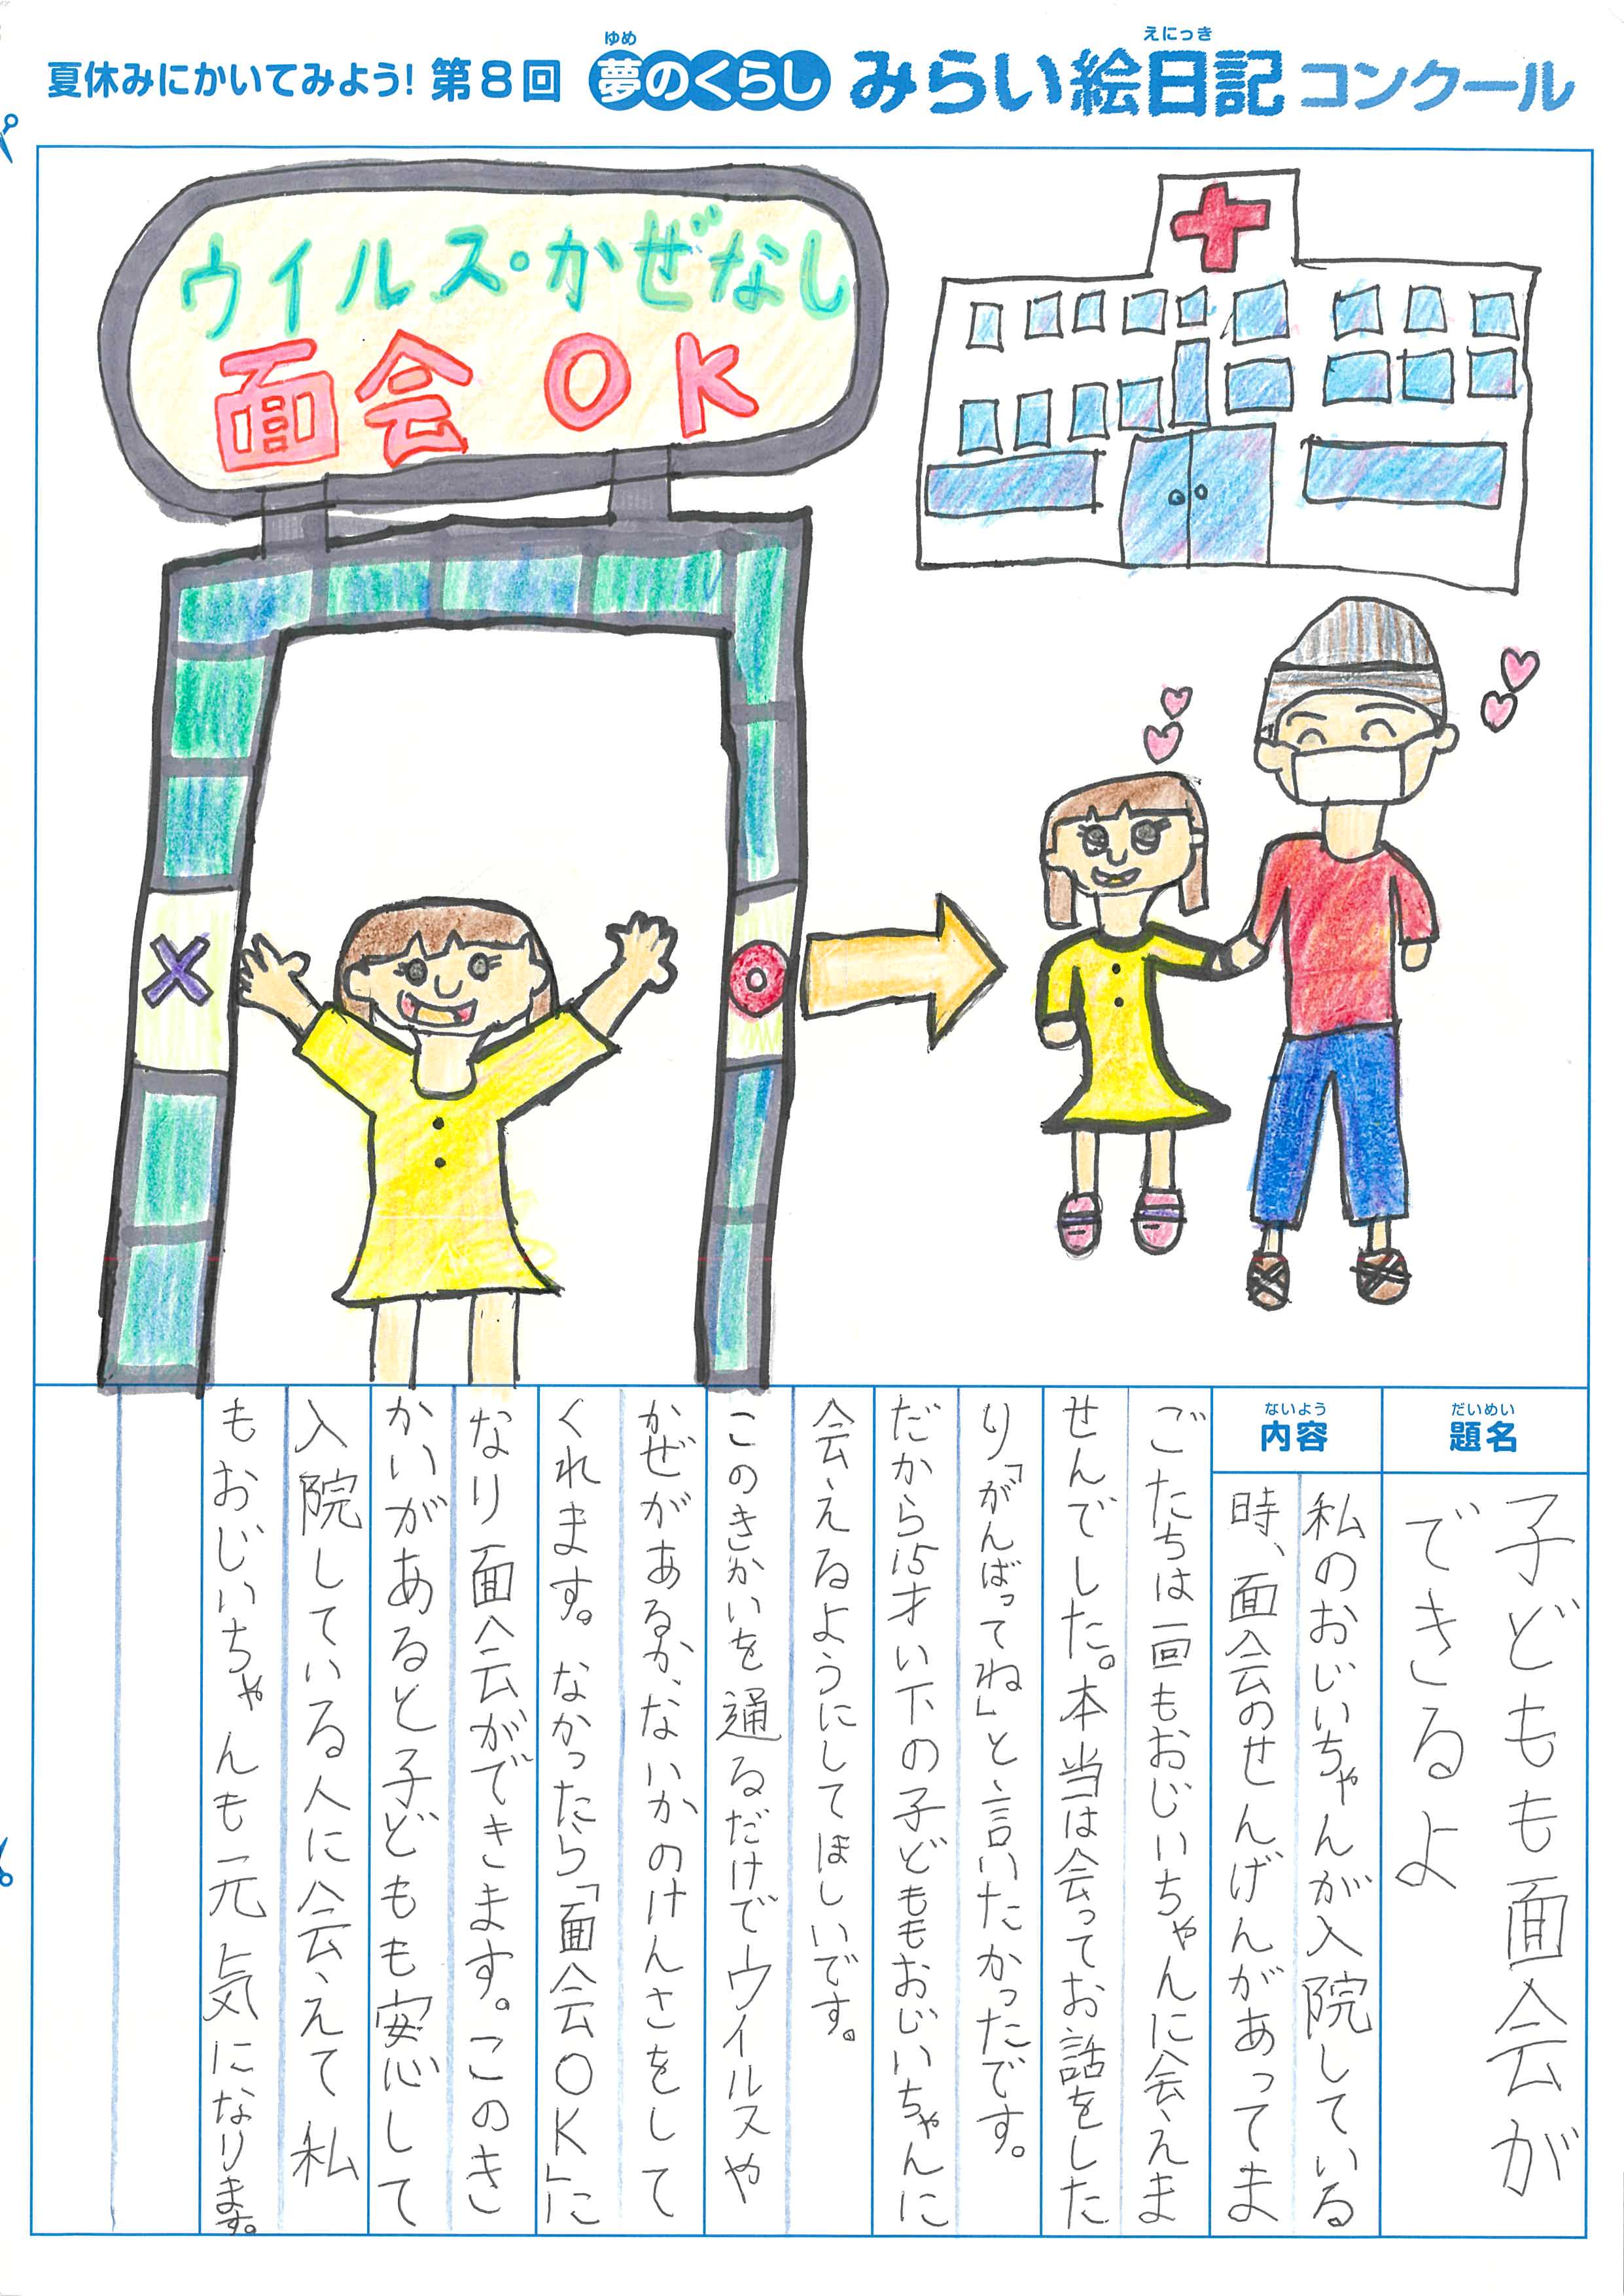 夏休みにかいてみよう! 第8回 夢のくらし みらい絵日記 コンクール
ゆめ
えにっき
ウイルス・かぜなし
面会 OK
だいめい
題名
子どもも面会が
できるよ
ないよう
内容
私のおじいちゃんが入院している
時、面会のせんげんがあってま
ごたちは一回もおじいちゃんに会えま
せんでした。本当は会ってお話をした
り「がんばってね」と言いたかったです。
だから15才い下の子どももおじいちゃんに
会えるようにしてほしいです。
このきかいを通るだけでウイルスや
かぜがあるか、ないかのけんさをして
くれます。なかったら「面会OK」に
なり面会ができます。このき
かいがあると子どもも安心して
入院している人に会えて私
もおじいちゃんも元気になります。